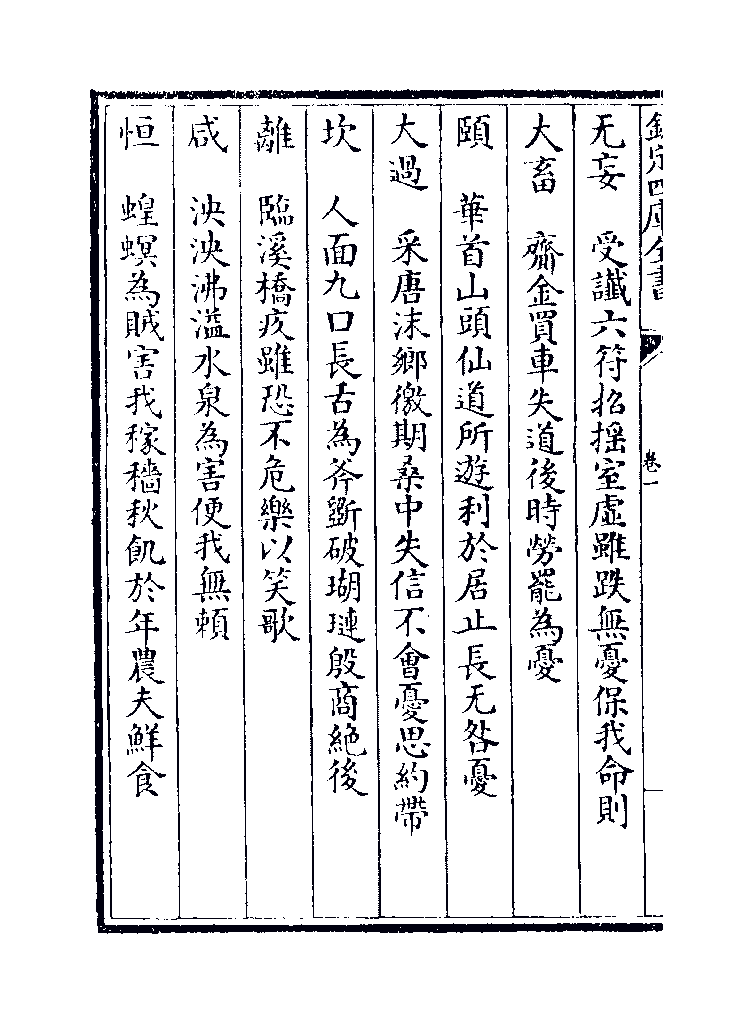 欽定四庫全書 卷一
无妄 受讖六符招搖室虛雖跌無憂保我命則
大畜 齎金買車失道後時勞罷為憂
頤 華首山頭仙道所遊利於居止長无咎憂
大過 采唐沬鄉徼期桑中失信不會憂思約帶
坎 人面九口長舌為斧斲破瑚璉殷商絶後
離 臨溪橋疚雖恐不危樂以笑歌
咸 泱泱沸溢水泉為害使我無賴
恒 蝗螟為賊害我稼穡秋飢於年農夫鮮食